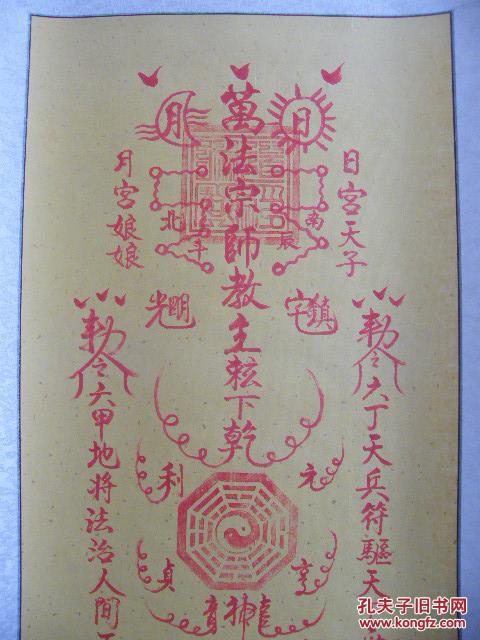 日
月
萬法宗師教主
下乾
日宮天子
月宮娘娘
南
辰
北
斗
鎮
字
明
光
勅令六丁天兵符驅天
勅令六甲地將法治人間
元
亨
利
貞
龍神
孔夫子旧书网
www.kongfz.com